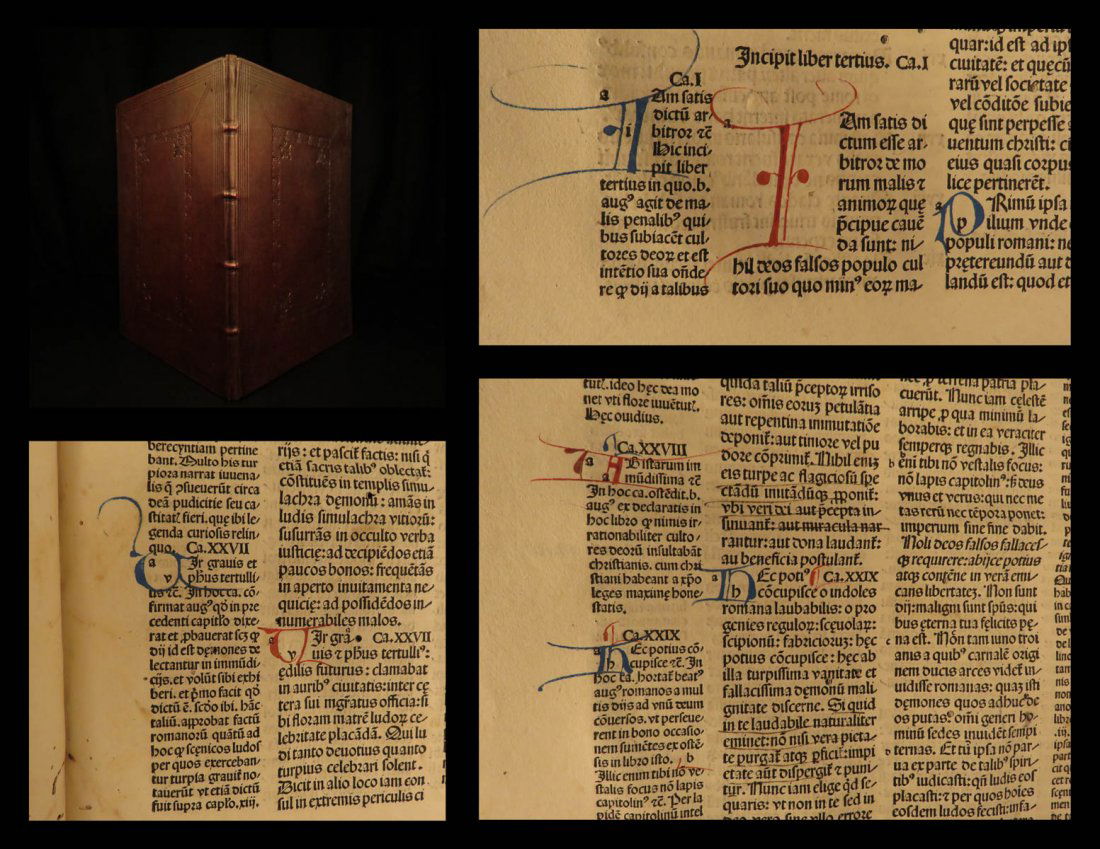 Incipit liber tertius. Ca.I
Ca.I
a
i
Am satis
dictū ar-
bitror ⁊c̄
Hic inci-
pit liber
tertius in quo.b.
augꝰ agit de ma-
lis penalibꝰ qui-
bus subiacēt cul-
tores deoꝝ et est
intētio sua onde-
re ꝙ dij a talibus
a
Am satis di
ctum esse ar-
bitror de mo
rum malis ⁊
animoꝝ que
p̄cipue cauē
da sunt: ni-
hil deos falsos populo cul
tori suo quo minꝰ eoꝝ ma-
quar:id est ad ip
ciuitatē: et quęcū
rarū vel societate
vel cōditōe subie
quę sint perpesse
uentum christi: ci
eius quasi corpus
lice pertinerēt.
a
p
Rimū ipsa
ilium vnde
populi romani: ne
prętereundū aut d
landū est: quod et
berecyntiam pertine
bant. Multo his tur
piora narrat iuuena-
lis ꝙ ꝯsueuerūt circa
deā pudicitie seu ca-
stitatꝭ fieri. que ibi le-
genda curiosis relin-
quo. Ca.XXVII
a
v
Ir grauis et
ph̄us tertulli-
us ⁊c̄. In hoc ca. cō-
firmat augꝰ qđ in pre
cedenti capitlo dixe-
rat et ꝓbauerat scꝫ ꝙ
dij id est demones de
lectantur in immūdi-
cijs. et volūt sibi exhi
beri. et p̄mo facit qđ
dictū ē. scđo ibi. hāc
taliū. approbat factū
romanorū quātū ad
hoc ꝙ scenicos ludos
per quos exerceban-
tur turpia grauit̉ no-
tauerūt vt etiā dictū
fuit supra caplo. xiij.
rijs: et pascit̉ factis: nisi ꝙ
etiā sacris talibꝰ oblectat̉:
cōstitues in templis simu-
lachra demonū: amās in
ludis simulachra vitiorū:
susurrās in occulto verba
iusticię: ad decipiēdos etiā
paucos bonos: frequētās
in aperto inuitamenta ne
quicię: ad possidēdos in-
numerabiles malos.
a
v
Ir gra- Ca.XXVII
uis ⁊ ph̄us tertulliꝰ:
ędilis futurus: clamabat
in auribꝰ ciuitatis: inter cę
tera sui mgr̄atus officia: si
bi floram matrē ludoꝝ ce-
lebritate placādā. Qui lu
di tanto deuotius quanto
turpius celebrari solent.
Dicit in alio loco iam con
sul in extremis periculis ci
tutꝭ. ideo hęc dea mo
net vti flore iuuētutꝭ.
Hęc ouidius.
Ca.XXVIII
a
a
Bistarum im
mūdissima ⁊c̄
In hoc ca. ostēdit.b.
augꝰ ex declaratis in
hoc libro ꝙ nimis ir-
rationabiliter culto-
res deorū insultabāt
christianis. cum chri
stiani habeant a xp̄o
leges maxime hone-
statis.
Ca.XXIX
h
Ec potius cō-
cupisce ⁊c̄. In
hoc ca. hortat̉ beatꝰ
augꝰ romanos a mul
tis dijs ad vnū deum
cōuersos. vt perseue-
rent in bono occasio-
nem sumētes ex ostē-
sis in libro isto. b
Illic enim tibi nō ve-
stalis focus nō lapis
capitolinꝰ ⁊c̄. Per la
pidē capitolinū intel
quida taliū p̄ceptoꝝ irriso
res: oīnis eoruꝫ petulātia
aut repentina immutatiōe
deponit̉: aut timore vel pu
dore cōprimit̉. Nihil enīꝫ
eis turpe ac flagiciosū spe
ctādū imitādūqꝫ ꝓponit̉:
vbi veri dei aut p̄cepta in-
sinuant̉: aut miracula nar-
rantur: aut dona laudant̉:
au beneficia postulant̉.
a
h
Ec potiꝰ Ca.XXIX
cōcupisce o indoles
romana laudabilis: o pro
genies reguloꝝ: scęuolaꝝ:
scipionū: fabricioruꝫ: hęc
potius cōcupisce: hęc ab
illa turpissima vanitate et
fallacissima demonū mali
gnitate discerne. Si quid
in te laudabile naturaliter
eminet: nō nisi vera pieta-
te purgat̉ atqꝫ ꝑficit̉: impi
etate aūt dispergit̉ ⁊ puni-
tur̉. Nunc iam elige qđ se-
quaris: vt non in te sed in
deo vero sine vllo errore
nec ꝓ terrena patria pla-
cuerūt. Nunc iam cęlestē
arripe, ꝓ qua minimū la-
borabis: et in ea veraciter
semperqꝫ regnabis. Illic
b
eni tibi nō vestalis focus:
nō lapis capitolinꝰ: sꝫ deus
vnus et verus: qui nec me
tas rerū nec tēpora ponet:
imperium sine fine dabit.
Noli deos falsos fallaces-
qꝫ requirere: abijce potius
atqꝫ contēne in verā emi
cans libertateꝫ. Non sunt
dij: maligni sunt sp̄us: qui
bus ęterna tua felicitꝭ pę-
c
na est. Nō tam iuno troi
anis a quibꝰ carnalē origi
nem ducis arces videt̉ in-
uidisse romanas: quaꝫ isti
demones quos adhuc de
os putas: oīni generi ho-
minū sedes inuidēt sempi
ternas. Et tu ipsa nō par-
ua ex parte de talibꝰ spiri-
tibꝰ iudicasti: qn̄ ludis eos
placasti: ⁊ per quos hoīes
eosdem ludos fecisti: infa-